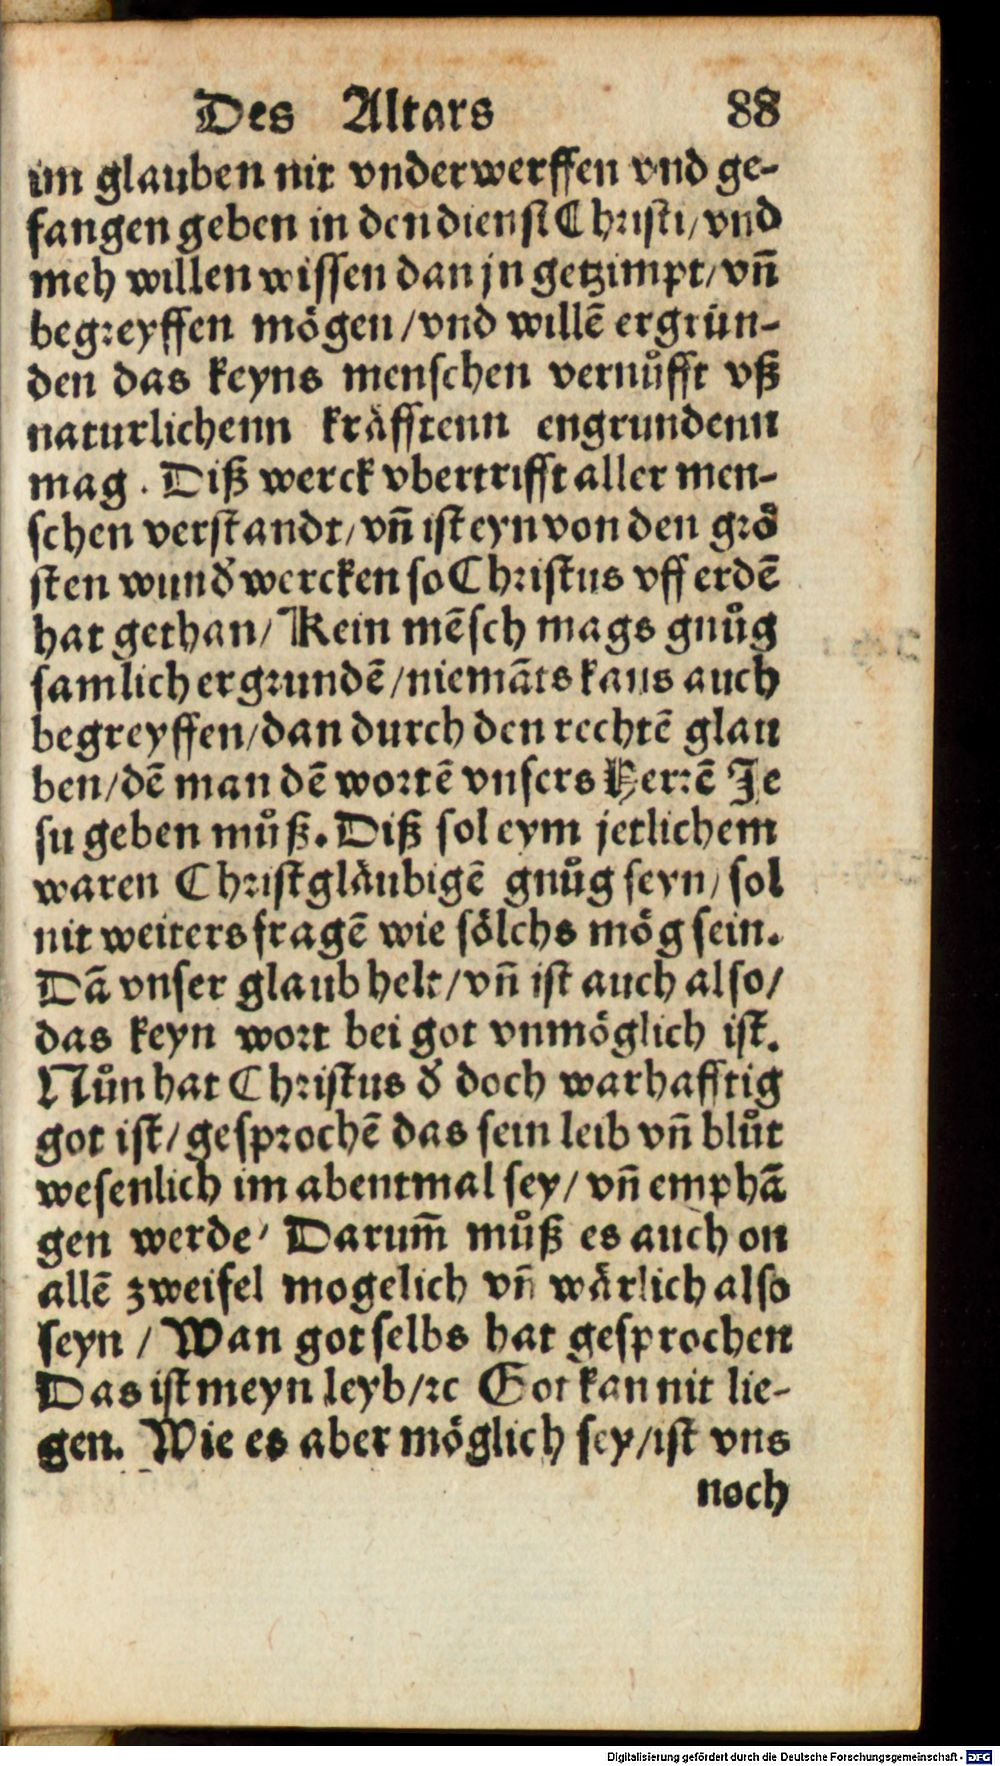 Des Altars 88
im glauben nit vnderwerffen vnd ge-
fangen geben in den dienst Christi/ vnd
meh willen wissen dan jn getzimpt/ vn̄
begreyffen mögen /vnd willē ergrün-
den das keyns menschen vernůfft vß
naturlichenn kräfftenn engrundenn
mag. Diß werck vbertrifft aller men-
schen verstandt/ vn̄ ist eyn von den grö
sten wunď wercken so Christus vff erdē
hat gethan/ Kein mēsch mags gnůg
samlich ergrundē /niemāts kans auch
begreyffen/dan durch den rechtē glau
ben/dē man dē wortē vnsers Herrē Je
su geben můß. Diß sol eym jetlichem
waren Christgläubigē gnůg seyn/ sol
nit weiters fragē wie sölchs mög sein.
Dā vnser glaub helt/vn̄ ist auch also/
das keyn wort bei got vnmöglich ist.
Nůn hat Christus ď doch warhafftig
got ist/ gesprochē das sein leib vn̄ blůt
wesenlich im abentmal sey/ vn̄ emphā
gen werde/ Darum̄ můß es auch on
allē zweifel mogelich vn̄ wärlich also
seyn / Wan got selbs hat gesprochen
Das ist meyn leyb/ꝛc Got kan nit lie-
gen. Wie es aber möglich sey/ist vns
noch
Digitalisierung gefördert durch die Deutsche Forschungsgemeinschaft - DFG